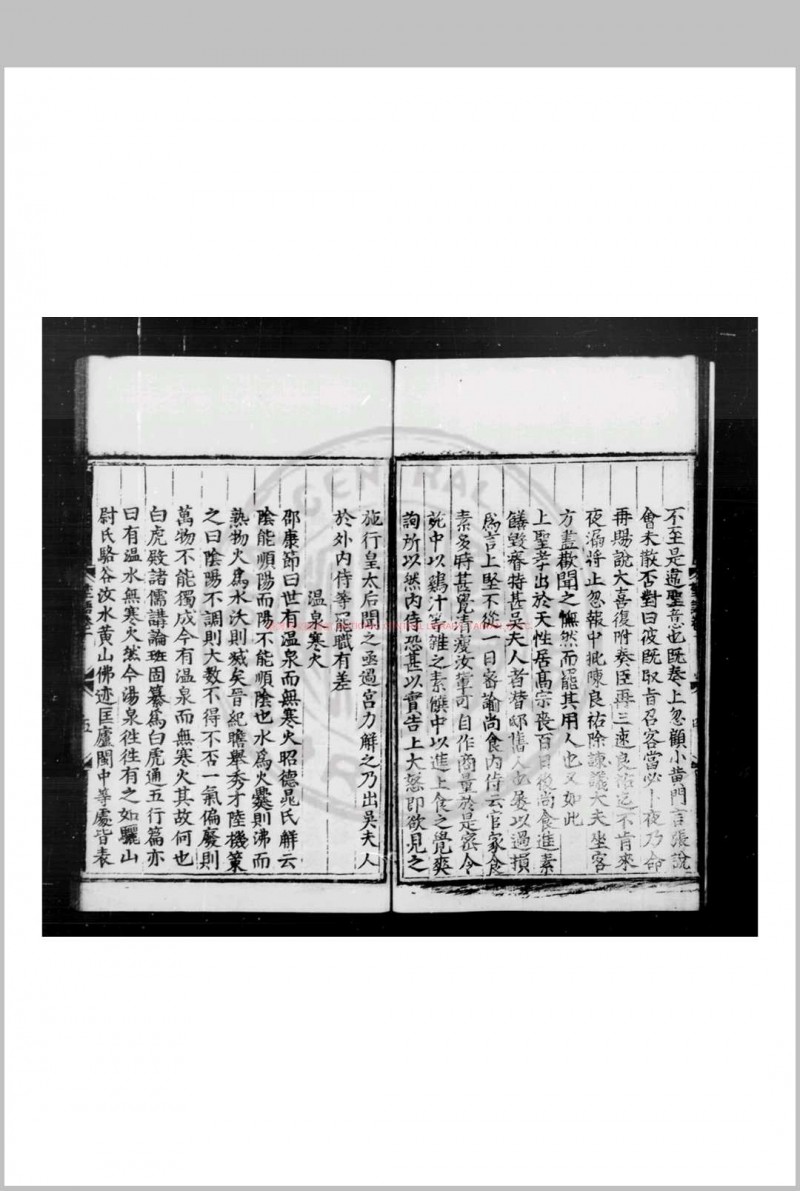 不至是違聖意也既奏上忽顧小黃門言張說
會未散否對曰彼既取旨召客當必卜夜乃命
再賜說大喜復附奏臣再三速良祐迄不肯來
夜漏將止忽報中批陳良祐除諫議大夫坐客
方盡歡聞之憮然而罷其用人也又如此
上聖孝出於天性居高宗喪百日後尚食進素
饍毀瘠特甚吳夫人者潛邸舊人也屢以過損
為言上堅不從一日密諭尚食內侍云官家食
素多時甚覺清瘦汝輩可自作商量於是密令
苑中以鷄汁等雜之素饌中以進上食之覺爽
詢所以然內侍恐甚以實告上大怒即欲見之
施行皇太后聞之亟過宮力解之乃出吳夫人
於外內侍等罷職有差
溫泉寒火
邵康節曰世有溫泉而無寒火昭德晁氏解云
陰能順陽而陽不能順陰也水為火爨則沸而
熱物火為水沃則滅矣晉紀瞻舉秀才陸機策
之曰陰陽不調則大數不得不否一氣偏廢則
萬物不能獨成今有溫泉而無寒火其故何也
白虎殿諸儒講論班固纂為白虎通五行篇亦
曰有溫水無寒火然今湯泉往往有之如驪山
尉氏駱谷汝水黃山佛迹匡廬閩中等處皆表